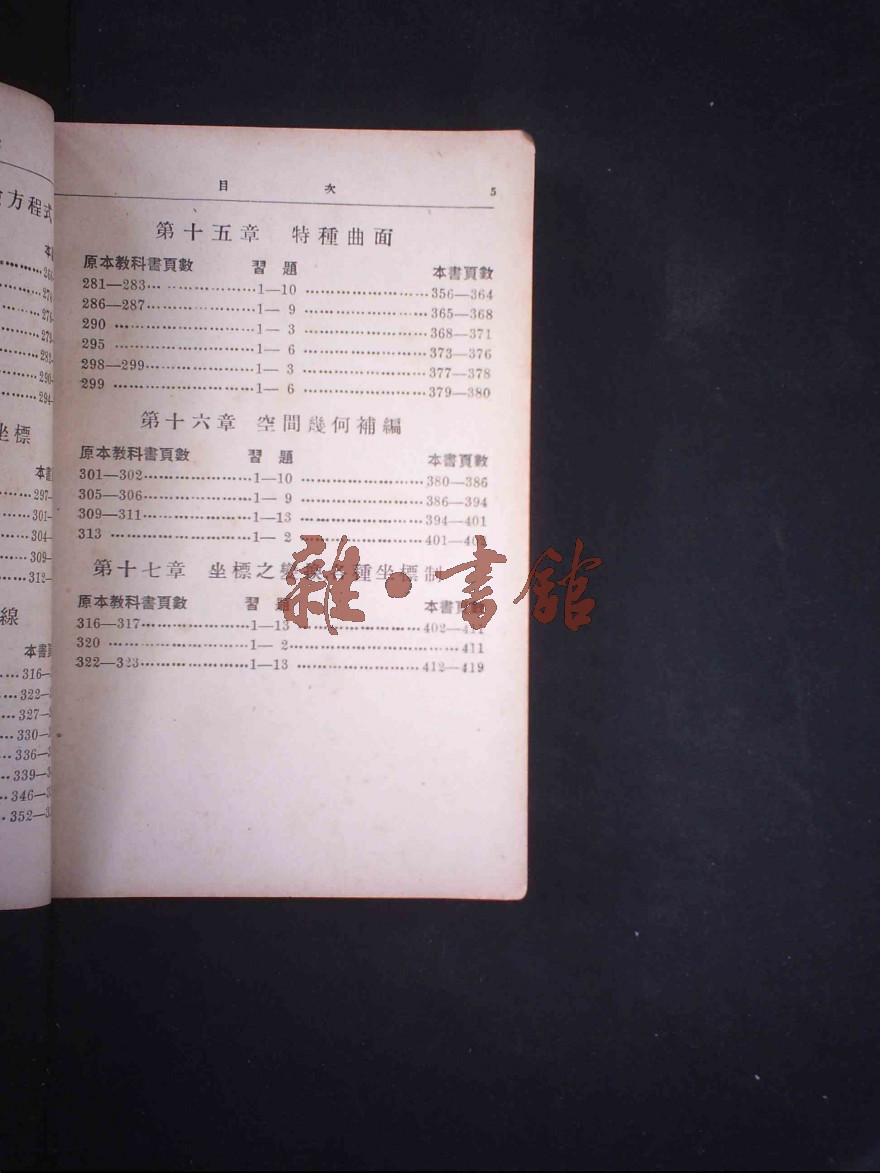 方程式
坐標
線
目 次 5
第十五章 特種曲面
原本教科書頁數 習題 本書頁數
281—283………………1—10………………356—364
286—287………………1— 9………………365—368
290………………1— 3………………368—371
295………………1— 6………………373—376
298—299………………1— 3………………377—378
299………………1— 6………………379—380
第十六章 空間幾何補編
原本教科書頁數 習題 本書頁數
301—302………………1—10………………380—386
305—306………………1— 9………………386—394
309—311………………1—13………………394—401
313………………1— 2………………401—40
第十七章 坐標之 各種坐標制
原本教科書頁數 習題 本書頁數
316—317………………1—13………………402—411
320………………1— 2………………411
322—323………………1—13………………412—419
雜·書館